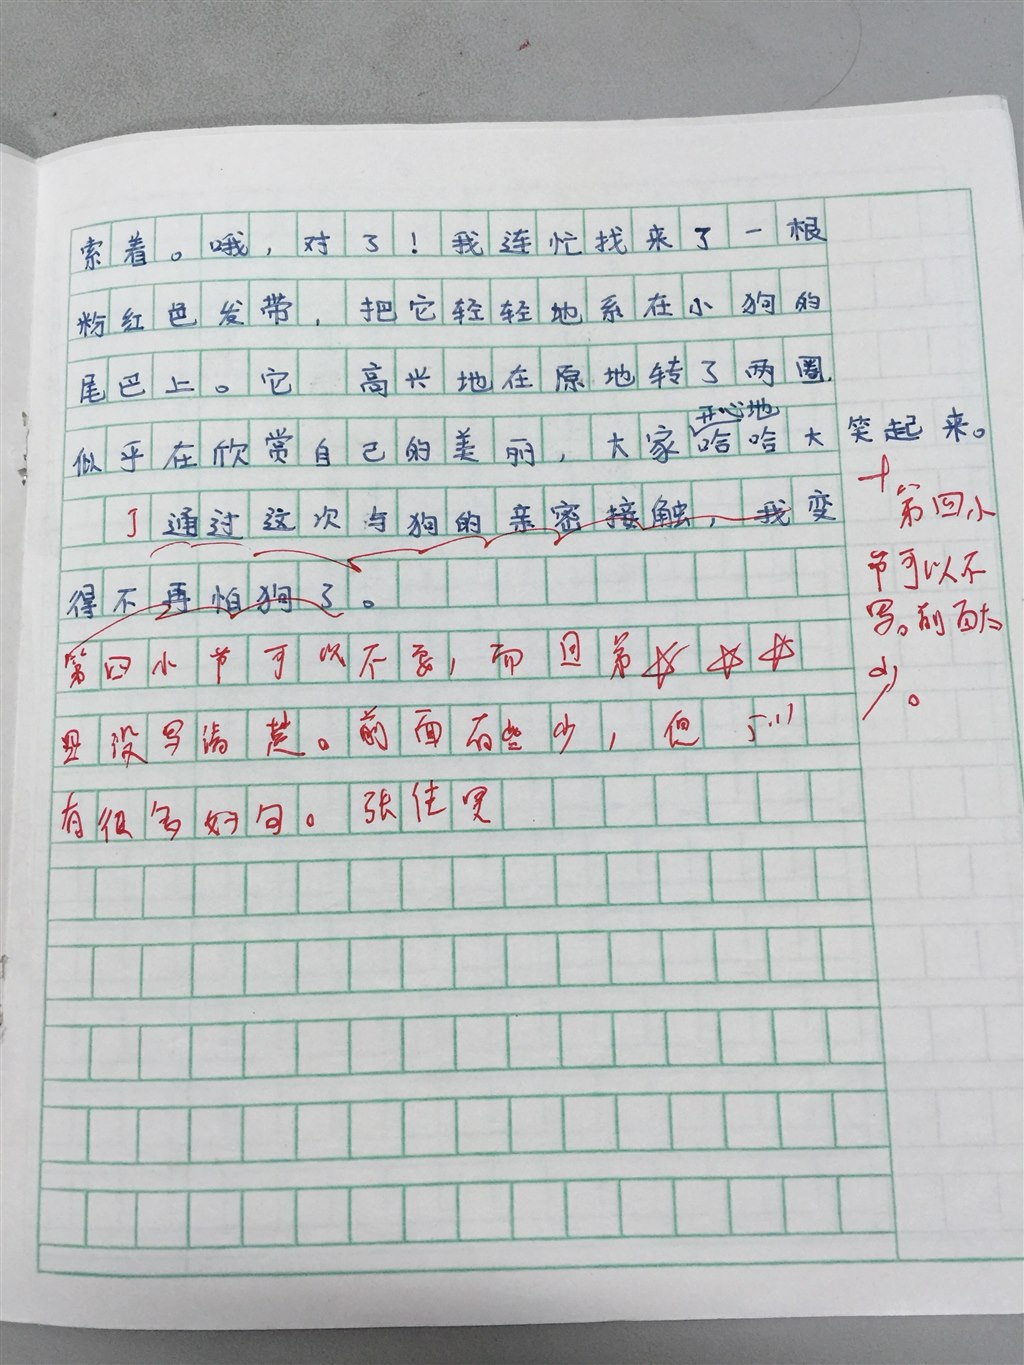 索着。哦，对了！我连忙找来了一根
粉红色发带，把它轻轻地系在小狗的
尾巴上。它 高兴地在原地转了两圈，
开心地
似乎在欣赏自己的美丽，大家哈哈大笑起来。
通过这次与狗的亲密接触，我变
得不再怕狗了。
第四小节可以不要，而回第
且没写清楚。前面有些少，但
有很多好句。张佳
第四小
节可以不
写。前面太
少。